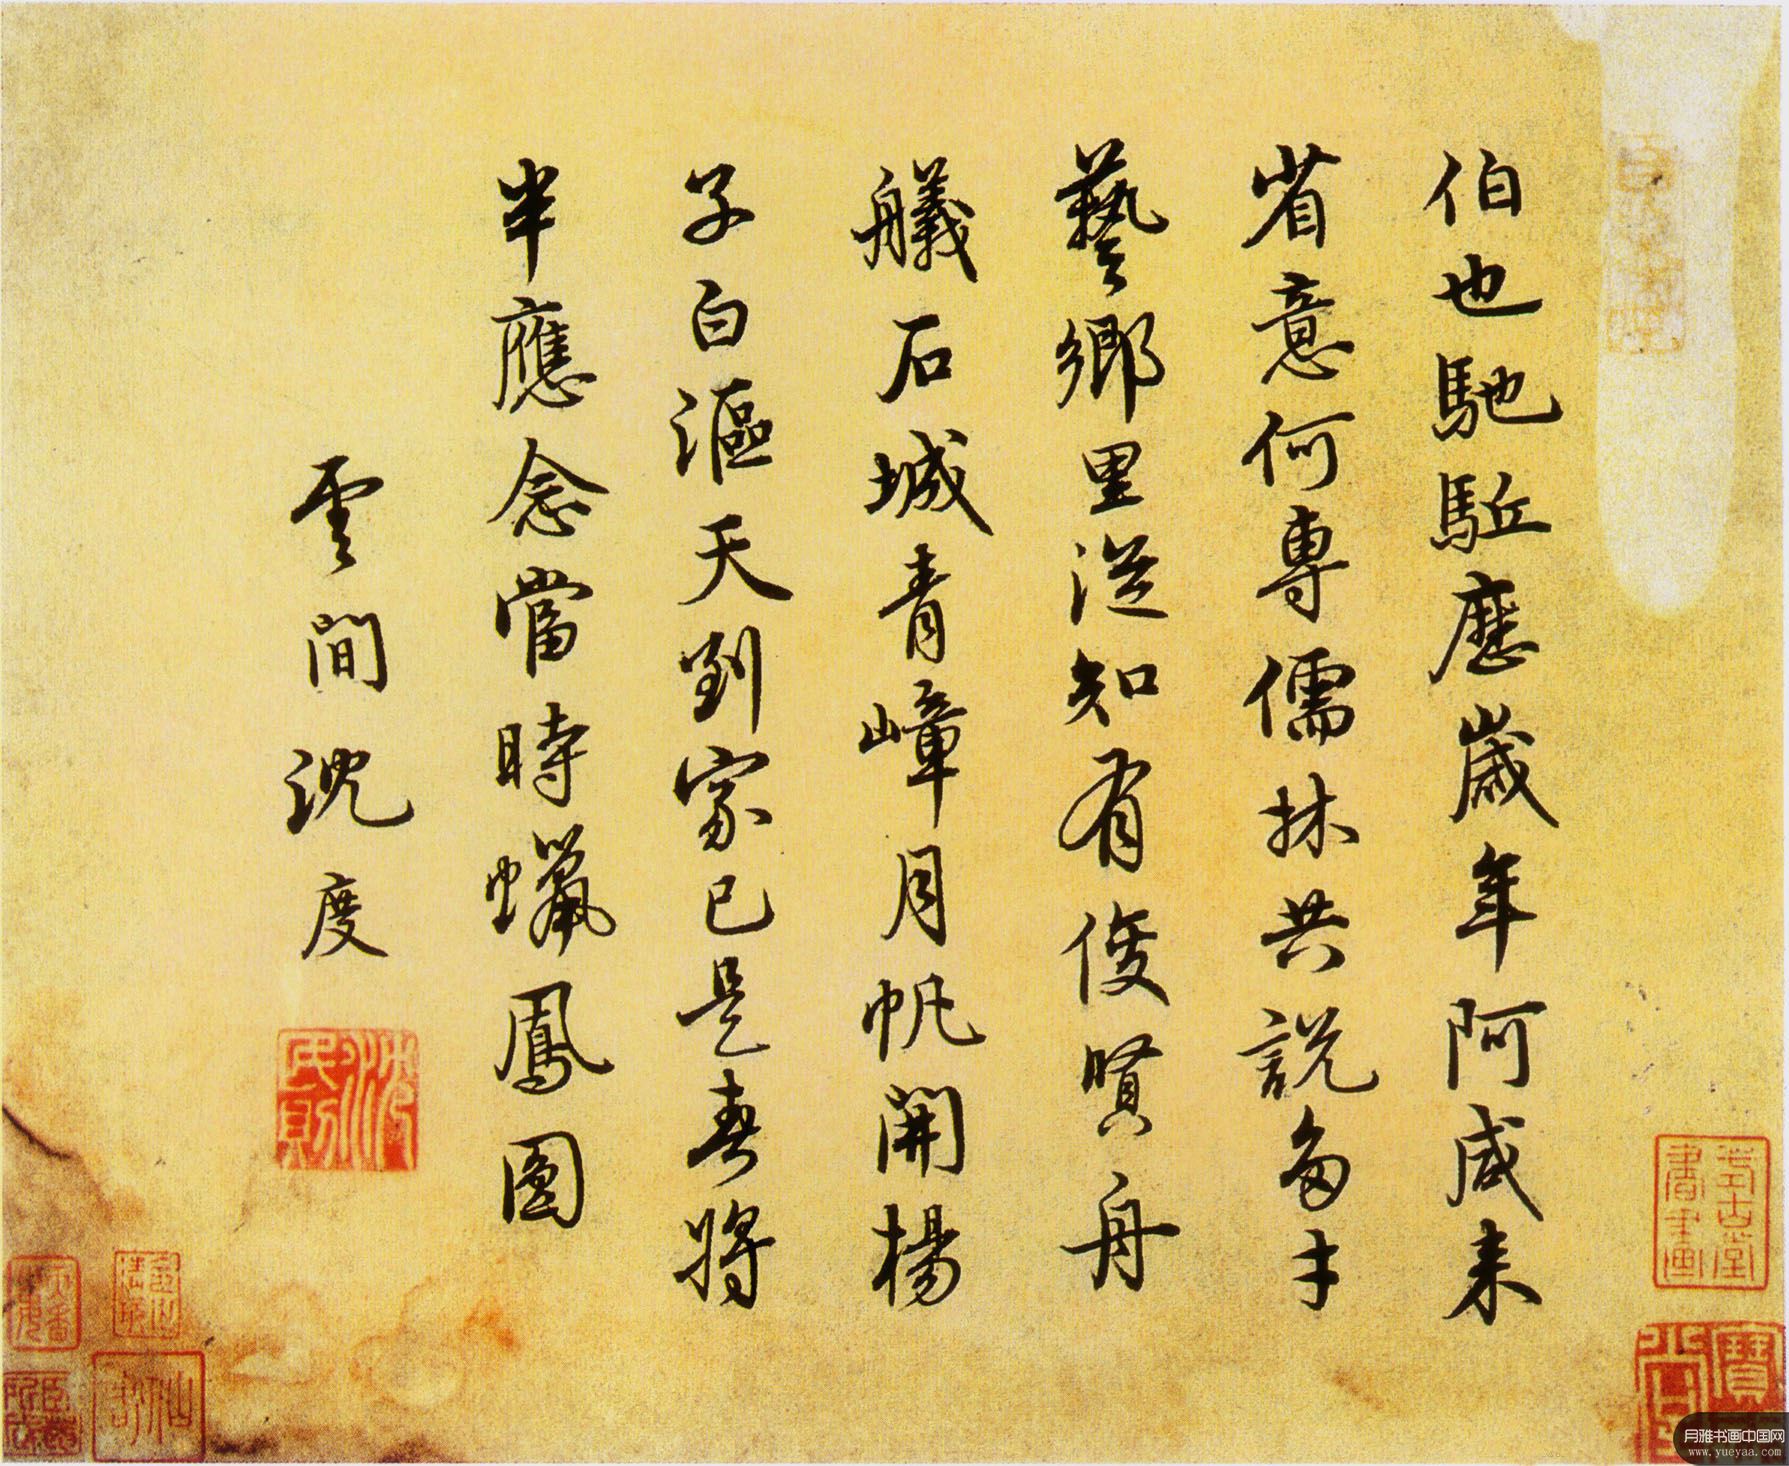 伯也馳驅歷歲年阿咸来
省意何專儒林共說多才
藝鄉里從知有俊賢舟
艤石城青嶂月帆開楊
子白漚天到家已是春將
半應念當時蠟鳳圓
雲間沈度
沈氏民則
月雅书画中国网
www.yueyaa.com